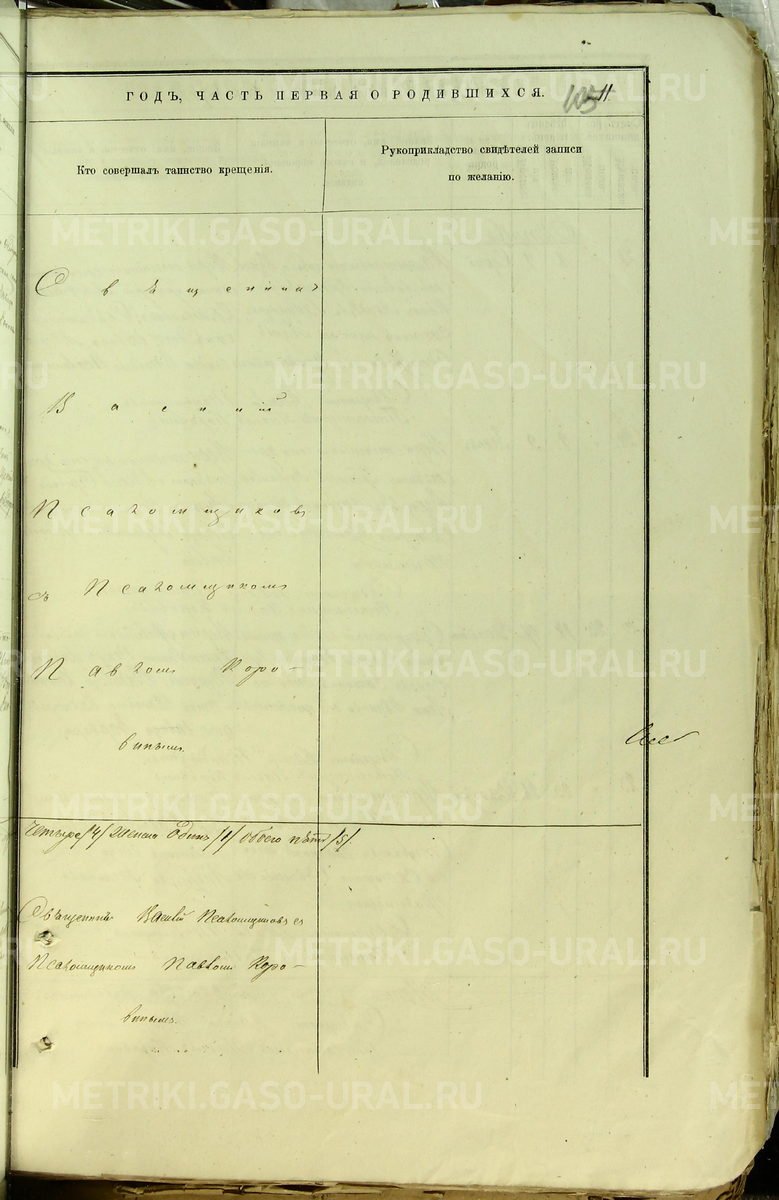 ГОДЪ, ЧАСТЬ ПЕРВАЯ О РОДИВШИХСЯ.
105
11
Кто совершалъ таинство крещенія.
Рукоприкладство свидѣтелей записи
по желанію.
Священникъ
Василій
Псаломщиковъ
съ Псаломщикомъ
Павломъ Коро-
винымъ.
четыре /4/ Женска Одинъ /1/ обоего пяти /5/.
Священникъ Василій Псаломщиковъ съ
Псаломщикомъ Павломъ Коро-
винымъ.
METRIKI.GASO-URAL.RU